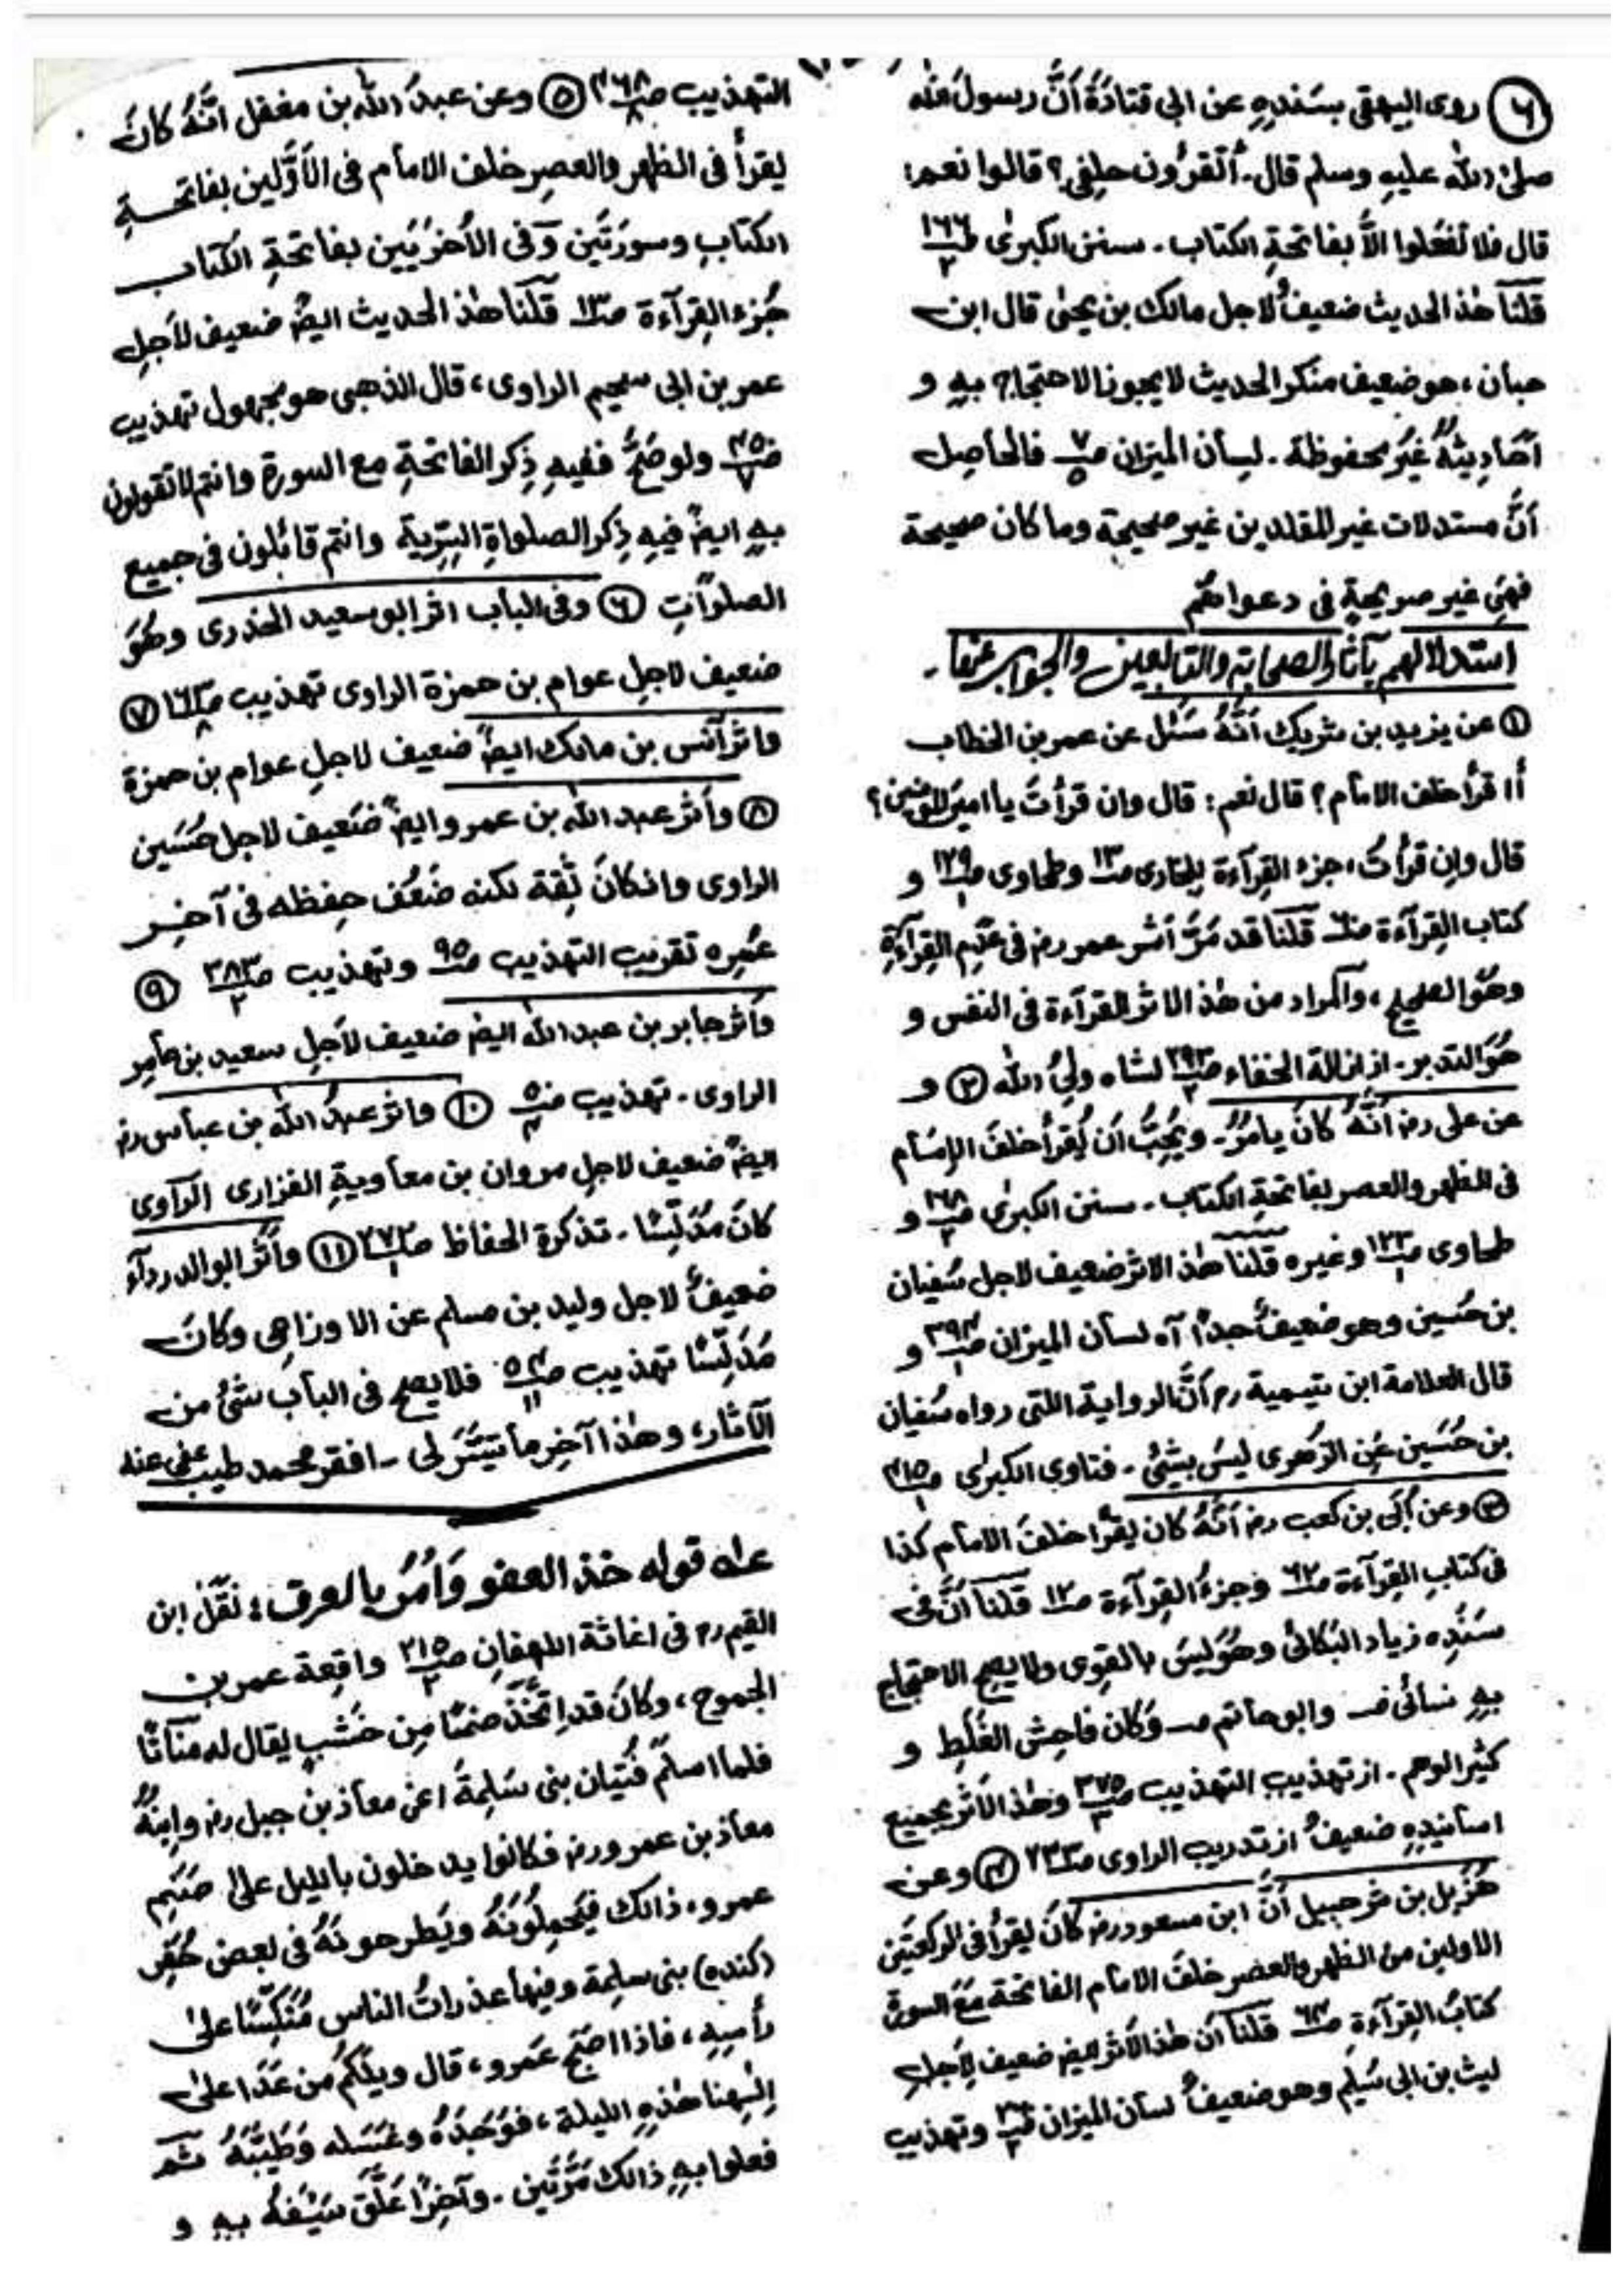 ٦ روى البيهقى بسَندِهِ عن ابى قتادَةَ أنَّ رسولَ الله
صلى الله عليهِ وسلم قال۔ أتقرؤن خلفى؟ قالوا نعم:
قال فلا تفعلوا الاَّ بفاتحةِ الكتاب ۔ سنن الكبرىٰ ص١٦٦/٢
قلنا هٰذ الحديث ضعيفٌ لاجل مالك بن يحيٰى قال ابن
حبان، هو ضعيف منكر الحديث لا يجوز الاحتجاج بهٖ و
احَاديثهٗ غيرُ محفوظة ۔ لسان الميزان ص٧/٥ فالحاصِل
أنَّ مستدلات غير المقلدين غير صحيحة وما كان صحيحة
فهِىَ غير صريحةٍ فى دعواهم
استدلالهم بآثار الصحابة والتابعين والجواب عنها۔
١ عن يزيد بن شريك أنَّهٗ سَئَل عن عمر بن الخطاب
أأ قرأ خلف الامام؟ قال نعم: قال وان قرأتَ يا امير المؤمنين؟
قال وإن قرأتُ، جزء القِرآءة للبخارى ص١٣ وطحاوى ص١٢٩/١ و
كتاب القِرآءة ص٦٠ قلنا قد مَرَّ أثر عمر رض فى عَدَمِ القِرآءةِ
وهُو الصحيح، والمراد من هٰذ الاثر القرآءة فى النفس و
هُوَ التدبر۔ از ازالة الخفاء ص٢٩٣/٢ لشاه ولىُّ الله ٢ و
عن على رض أنَّهٗ كانَ يامُرُ۔ ويُحِبُّ أن يُقرأ خلفَ الإمَام
فى الظهر والعصر بفاتحةِ الكتاب۔ سنن الكبرىٰ ص١٦٨/٢ و
طحاوى ص١٢٣/١ وغيره قلنا هٰذ الاثر ضعيف لاجل سُفيان
بن حُسَين وهو ضعيفٌ جداً آه لسان الميزان ص٣٩٤/١ و
قال العلامة ابن تيمية رح أنَّ الرواية اللتى رواه سُفيان
بن حُسَين عَنِ الزُهرى ليسَ بشئ۔ فتاوى الكبرىٰ ص٤١٥/١
٣ وعن أُبَى بن كعب رض أنَّهٗ كان يقرأ خلفَ الامام كذا
فى كتاب القِرآءة ص٦٢ وجزءُ القِرآءة ص١٢ قلنا أنَّ فى
سنَدِه زياد البَكائى وهُوَ ليسَ بالقوِى ولا يصح الاحتجاج
بهٖ نسائى ف‍ وابوحاتم م‍ وكان فاحِش الغَلَطِ و
كثير الوهم۔ از تهذيب التهذيب ص٣٧٥/٣ وهٰذ الأثر بجميع
اسانيدِهِ ضعيفٌ از تدريب الراوى ص٢٣٣ ٤ وعن
هُزَيل بن شرحبيل أنَّ ابن مسعود رض كانَ يقرأ فى الركعتَين
الاولين من الظهر والعصر خلفَ الامام الفاتحة معَ السورة
كتابُ القِرآءةِ ص٦٤ قلنا أن هٰذ الأثر ايضً ضعيف لِأجل
ليث بن ابى سُليم وهو ضعيفٌ لسان الميزان وتهذيب
التهذيب ص٤٦٨/٨ ٥ وعن عبدَ الله بن مغفل انَّهٗ كانَ
يقرأ فى الظهر والعصرِ خلف الامام فى الأوَّلين بفاتحةِ
الكتابِ وسورتَين وَفى الأخرَيَين بفاتحةِ الكتاب
جُزء القِرآءة ص١٣ قلنا هٰذ الحديث ايضً ضعيف لأجلِ
عمر بن ابى سحيم الراوى، قال الذهبى هو مجهول تهذيب
ص٤٥٠/٧ ولو صَحَّ ففيهِ ذِكر الفاتحةِ مع السورة وانتم لا تقولون
بهٖ ايضً فيهِ ذِكر الصلواةِ السِّرية وانتم قائلون فى جميع
الصلواتِ ٦ وفى الباب اثر ابو سعيد الخدرى وهُوَ
ضعيف لاجل عوام بن حمزة الراوى تهذيب ص١٦٣/٨ ٧
واثر أنس بن مالك ايضً ضعيف لاجلِ عوام بن حمزة
٨ وأثر عبد الله بن عمرو ايضً ضَعيف لاجل حُسَين
الراوى وانكانَ ثِقة لكنه ضَعُف حِفظه فى آخِر
عمُره تقريب التهذيب ص٩٥ وتهذيب ص٣٨٣/٢ ٩
وأثر جابر بن عبد الله ايضً ضعيف لأجلِ سعيد بن عامِر
الراوى۔ تهذيب ص٥٠/٤ ١٠ واثر عبدُ الله بن عباس رض
ايضً ضعيف لاجلِ مروان بن معاويةِ الفزارى الراوى
كانَ مدَلِّسًا۔ تذكرة الحفاظ ص٢٧٢/١ ١١ وأثر ابوالدردآء
ضعيفٌ لاجل وليد بن مسلم عن الاوزاعى وكانَ
مَدَلِّسًا تهذيب ص١٥٤/١١ فلا يصح فى الباب شئ من
الآثار، وهٰذا آخِر ما تيَسَّرَ لى ۔ افقر محمد طيب عفى عنه
عله قوله خذ العفو وَأمُر بالعرف؛ نقَلَ ابن
القيم رح فى اغاثة اللهفانِ ص٢١٥/٢ واقِعة عمر بن
الجموح، وكانَ قد اتَّخَذَ صنمًا مِن خَشبٍ يقال له مناتًا
فلما اسلَمَ فُتيان بنى سَلِمةَ اعنى معاذ بن جبل رض وابنُهٗ
معاذ بن عمرو رض فكانوا يد خلون بالليل علىٰ صَنَمِ
عمرو، ذالك فيَحمِلُونَهٗ ويَطرحونَهٗ فى بعضِ حُفَرِ
(كنده) بنى سلِمة وفيها عذراتُ الناس مُنَكِّسًا علىٰ
رأسِهٖ، فاذا اصبَح عَمرو، قال ويلَكُم مَن عَدَا علىٰ
اِلٰهِنا هٰذهِ الليلة، فوَجَدَهٗ وغسَله وَطَيَّبَهٗ ثم
فعلوا بهٖ ذالك مَرَّتَين۔ وآخِرًا عَلَّقَ سَيفَهٗ بهٖ و